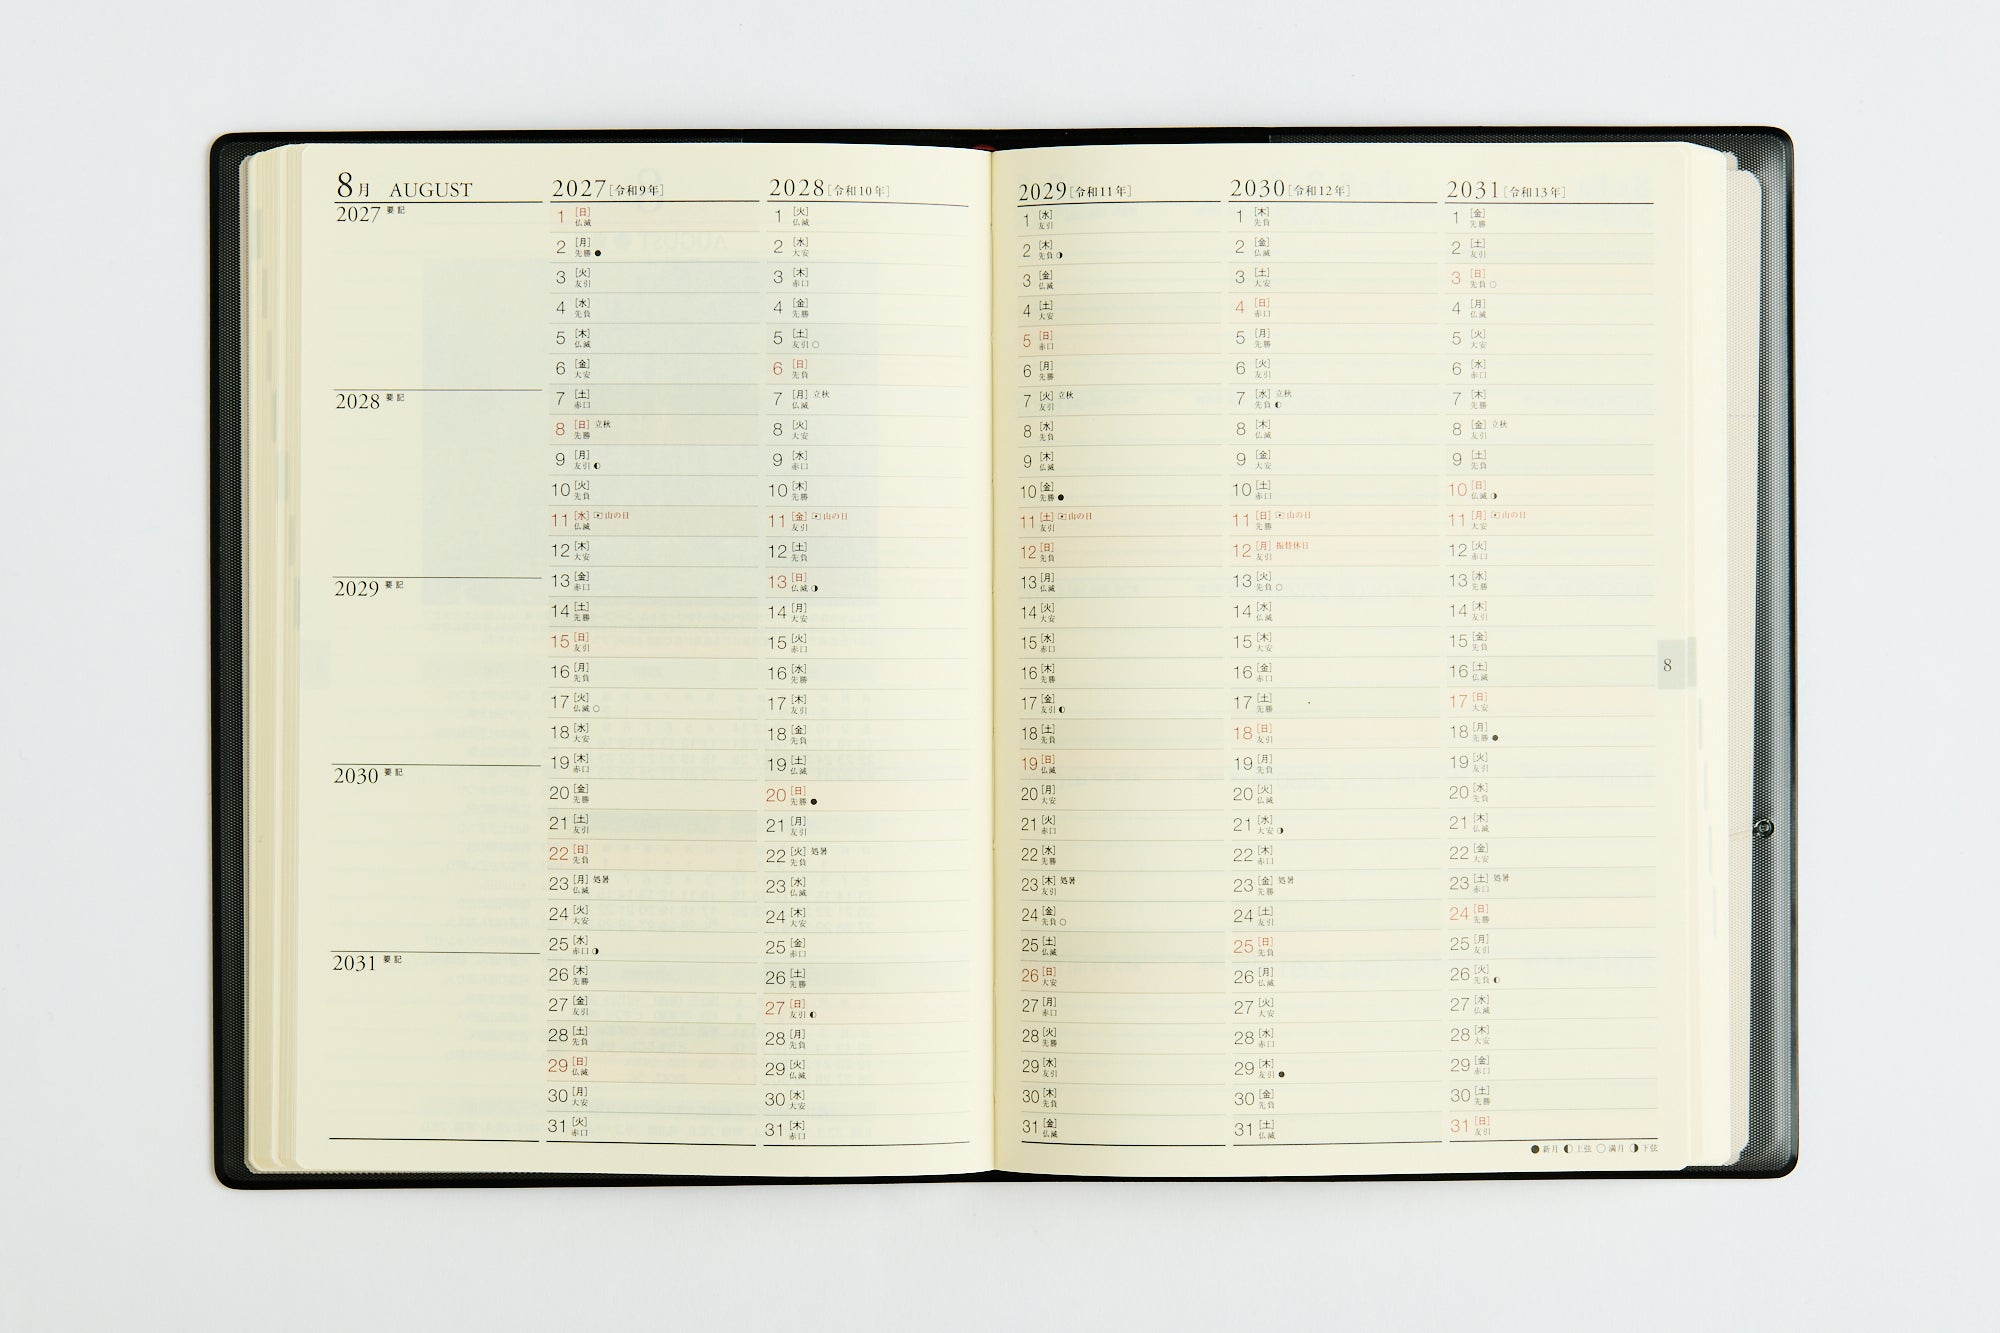 8月 AUGUST
2027 要記
2028 要記
2029 要記
2030 要記
2031 要記
2027[令和9年]
1 [日] 仏滅
2 [月] 先勝 ●
3 [火] 友引
4 [水] 先負
5 [木] 仏滅
6 [金] 大安
7 [土] 赤口
8 [日] 立秋 先勝
9 [月] 友引 ◐
10 [火] 先負
11 [水] 山の日 仏滅
12 [木] 大安
13 [金] 赤口
14 [土] 先勝
15 [日] 友引
16 [月] 先負
17 [火] 仏滅 ○
18 [水] 大安
19 [木] 赤口
20 [金] 先勝
21 [土] 友引
22 [日] 先負
23 [月] 処暑 仏滅
24 [火] 大安
25 [水] 赤口 ◑
26 [木] 先勝
27 [金] 友引
28 [土] 先負
29 [日] 仏滅
30 [月] 大安
31 [火] 赤口
2028[令和10年]
1 [火] 仏滅
2 [水] 大安
3 [木] 赤口
4 [金] 先勝
5 [土] 友引 ○
6 [日] 先負
7 [月] 立秋 仏滅
8 [火] 大安
9 [水] 赤口
10 [木] 先勝
11 [金] 山の日 友引
12 [土] 先負
13 [日] 仏滅 ◑
14 [月] 大安
15 [火] 赤口
16 [水] 先勝
17 [木] 友引
18 [金] 先負
19 [土] 仏滅
20 [日] 先勝 ●
21 [月] 友引
22 [火] 処暑 先負
23 [水] 仏滅
24 [木] 大安
25 [金] 赤口
26 [土] 先勝
27 [日] 友引 ◐
28 [月] 先負
29 [火] 仏滅
30 [水] 大安
31 [木] 赤口
2029[令和11年]
1 [水] 友引
2 [木] 先負 ◑
3 [金] 仏滅
4 [土] 大安
5 [日] 赤口
6 [月] 先勝
7 [火] 立秋 友引
8 [水] 先負
9 [木] 仏滅
10 [金] 先勝 ●
11 [土] 山の日 友引
12 [日] 先負
13 [月] 仏滅
14 [火] 大安
15 [水] 赤口
16 [木] 先勝
17 [金] 友引 ◐
18 [土] 先負
19 [日] 仏滅
20 [月] 大安
21 [火] 赤口
22 [水] 先勝
23 [木] 処暑 友引
24 [金] 先負 ○
25 [土] 仏滅
26 [日] 大安
27 [月] 赤口
28 [火] 先勝
29 [水] 友引
30 [木] 先負
31 [金] 仏滅
2030[令和12年]
1 [木] 先負
2 [金] 仏滅
3 [土] 大安
4 [日] 赤口
5 [月] 先勝
6 [火] 友引
7 [水] 立秋 先負 ◐
8 [木] 仏滅
9 [金] 大安
10 [土] 赤口
11 [日] 山の日 先勝
12 [月] 振替休日 友引
13 [火] 先負 ○
14 [水] 仏滅
15 [木] 大安
16 [金] 赤口
17 [土] 先勝
18 [日] 友引
19 [月] 先負
20 [火] 仏滅
21 [水] 大安 ◑
22 [木] 赤口
23 [金] 処暑 先勝
24 [土] 友引
25 [日] 先負
26 [月] 仏滅
27 [火] 大安
28 [水] 赤口
29 [木] 友引 ●
30 [金] 先負
31 [土] 仏滅
2031[令和13年]
1 [金] 先勝
2 [土] 友引
3 [日] 先負 ○
4 [月] 仏滅
5 [火] 大安
6 [水] 赤口
7 [木] 先勝
8 [金] 立秋 友引
9 [土] 先負
10 [日] 仏滅 ◑
11 [月] 山の日 大安
12 [火] 赤口
13 [水] 先勝
14 [木] 友引
15 [金] 先負
16 [土] 仏滅
17 [日] 大安
18 [月] 先勝 ●
19 [火] 友引
20 [水] 先負
21 [木] 仏滅
22 [金] 大安
23 [土] 処暑 赤口
24 [日] 先勝
25 [月] 友引
26 [火] 先負 ◐
27 [水] 仏滅
28 [木] 大安
29 [金] 赤口
30 [土] 先勝
31 [日] 友引
8
●新月 ◐上弦 ○満月 ◑下弦